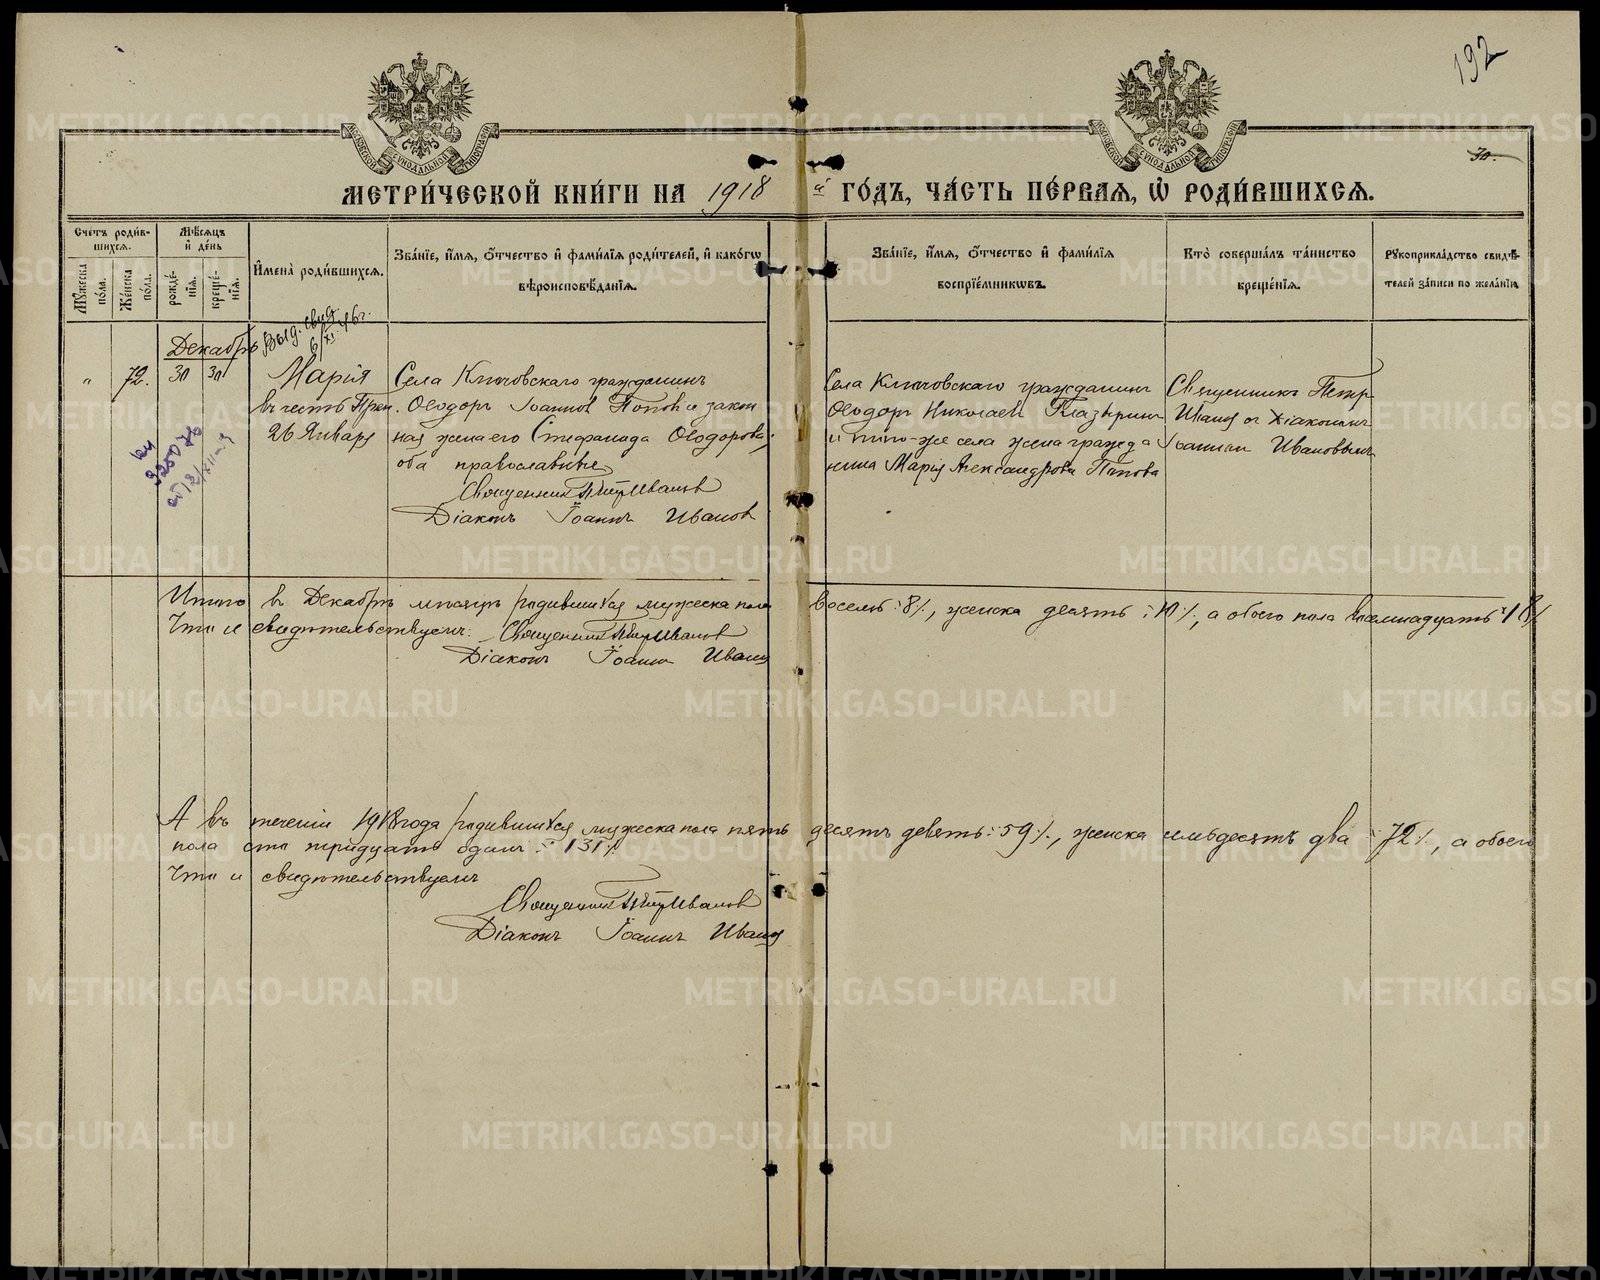 192
30.
МОСКОВСКОЙ СУНОДАЛЬНОЙ ТИПОГРАФІИ
МОСКОВСКОЙ СУНОДАЛЬНОЙ ТИПОГРАФІИ
МЕТРИ́ЧЕСКОЙ КНИ́ГИ НА 1918 й ГО́ДЪ, ЧА́СТЬ ПЕ́РВАЯ, Ѡ РОДИ́ВШИХСЯ.
Сче́тъ роди́в-
шихся.
Мꙋжеска по́ла.
Же́нска по́ла.
Мѣ́сяцъ и де́нь
рожде́нїя.
креще́нїя.
И҆мена̀ роди́вшихся.
Зва́нїе, и҆́мя, ѻ҆́тчество и҆ фами́лїя роди́телей, и҆ како́гѡ
вѣроисповѣ́данїя.
Зва́нїе, и҆́мя, ѻ҆́тчество и҆ фами́лїя
воспрїе́мникѡвъ.
Кто̀ соверша́лъ та́инство
креще́нїя.
Рꙋкоприкла́дство свидѣ́-
телей за́писи по жела́нїю
Декабрь
Выд. свид.
6/XI 46 г.
" 72. 30 30 Марія
въ честь Преп.
26 Января
925076
от 12/XII
Села Ключовскаго гражданинъ
Ѳеодоръ Іоанновъ Поповъ и закон
ная жена его Стефанида Ѳеодорова,
оба православные
Священникъ Петръ Ивановъ
Діаконъ Іоаннъ Ивановъ
Села Ключовскаго гражданинъ
Ѳеодоръ Николаевъ Глазыринъ
и того-же села жена гражда
нина Марія Александрова Попова
Священникъ Петр
Ивановъ съ діакономъ
Іоанномъ Ивановымъ
Итого въ Декабрѣ месяцѣ родившихся мужеска пола восемь :8%, женска десять :10%, а обоего пола восемнадцать :18%
Что и свидѣтельствуемъ: Священникъ Петръ Ивановъ
Діаконъ Іоаннъ Ивановъ
А въ теченіи 1918 года родившихся мужеска пола пять десятъ девять :59%, женска семьдесятъ два :72%, а обоего
пола сто тридцать одинъ :131%
Что и свидѣтельствуемъ
Священникъ Петръ Ивановъ
Діаконъ Іоаннъ Ивановъ
METRIKI.GASO-URAL.RU